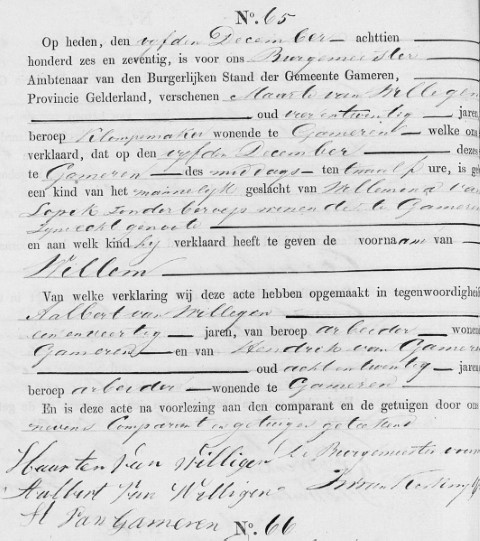 No. 65
Op heden, den vyfden December achttien
honderd zes en zeventig, is voor ons Burgemeester
Ambtenaar van den Burgerlijken Stand der Gemeente Gameren,
Provincie Gelderland, verschenen Maarten van Willigen
oud vierentwintig jaren,
beroep Klompemaker wonende te Gameren welke ons
verklaard, dat op den vyfden December dezes
te Gameren des middags ten twaalf ure, is ge
een kind van het mannelijk geslacht van Willemina van
Lopik zonder beroep wonende te Gameren
zyne echtgenoote
en aan welk kind hy verklaard heeft te geven de voornaam van
Willem
Van welke verklaring wij deze acte hebben opgemaakt in tegenwoordigheid
Aalbert van Willigen
eenenveertig jaren, van beroep arbeider wonende
Gameren en van Hendrik van Gameren
oud achtentwintig jaren
beroep arbeider wonende te Gameren
En is deze acte na voorlezing aan den comparant en de getuigen door ons
nevens Comparant en getuigen geteekend
Maarten Van Willigen De Burgemeester voorn
Aalbert Van Willigen
H Van Gameren
No. 66